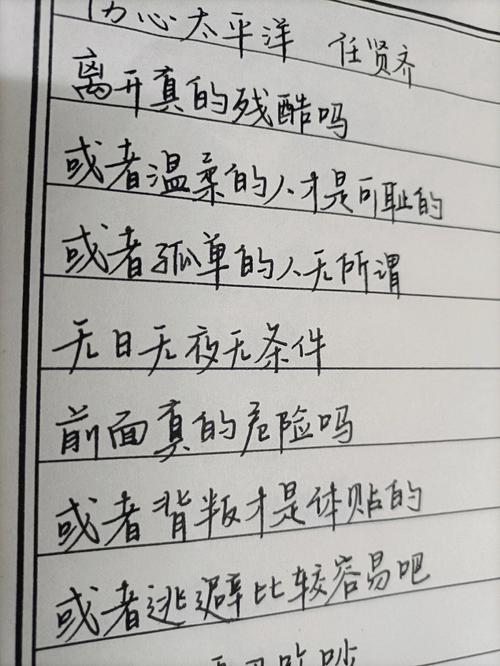 伤心太平洋 任贤齐
离开真的残酷吗
或者温柔的人才是可耻的
或者孤单的人无所谓
无日无夜无条件
前面真的危险吗
或者背叛才是体贴的
或者逃避比较容易吧